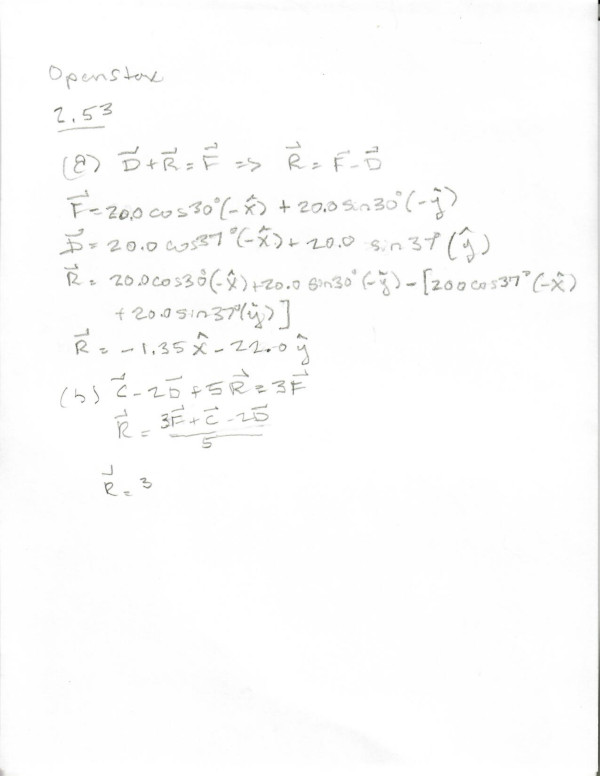 Openstax
2.53
(a) D⃗ + R⃗ = F⃗ => R⃗ = F⃗ - D⃗
F⃗ = 20.0 cos30°(-x̂) + 20.0 sin30°(-ŷ)
D⃗ = 20.0 cos37°(-x̂) + 20.0 sin37°(ŷ)
R⃗ = 20.0cos30°(-x̂) + 20.0 sin30°(-ŷ) - [20.0cos37°(-x̂)
+ 20.0sin37°(ŷ)]
R⃗ = -1.35 x̂ - 22.0 ŷ
(b) C⃗ - 2D⃗ + 5R⃗ = 3F⃗
R⃗ = (3F⃗ + C⃗ - 2D⃗)/5
R⃗ = 3